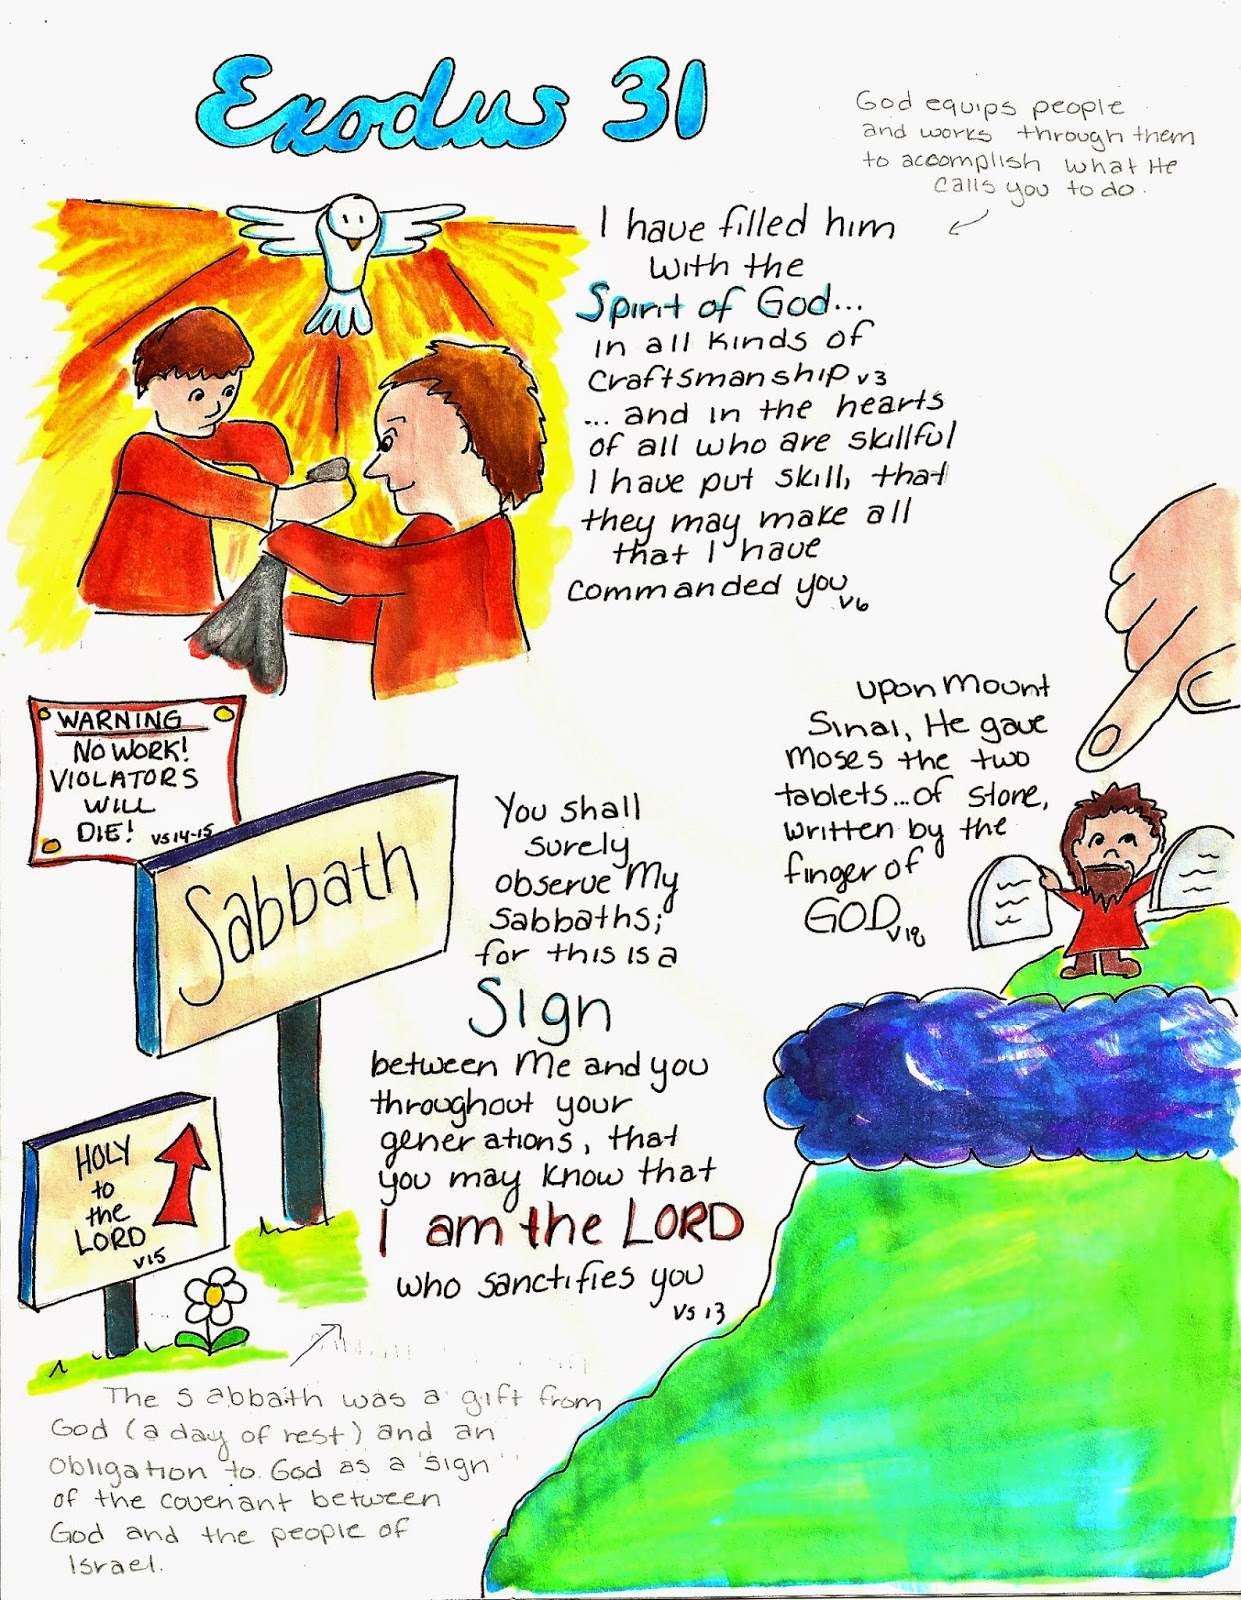 Exodus 31
God equips people
and works through them
to accomplish what He
calls you to do.
I have filled him
with the
Spirit of God...
in all kinds of
craftsmanship v3
... and in the hearts
of all who are skillful
I have put skill, that
they may make all
that I have
commanded you
v6
WARNING
NO WORK!
VIOLATORS
WILL
DIE! vs 14-15
Sabbath
You shall
surely
observe My
Sabbaths;
for this is a
Sign
between Me and you
throughout your
generations, that
you may know that
I am the LORD
who sanctifies you
vs 13
upon Mount
Sinai, He gave
Moses the two
tablets...of stone,
written by the
finger of
GOD v18
HOLY
to
the
LORD
v15
The Sabbath was a gift from
God (a day of rest) and an
obligation to God as a "sign"
of the covenant between
God and the people of
Israel.